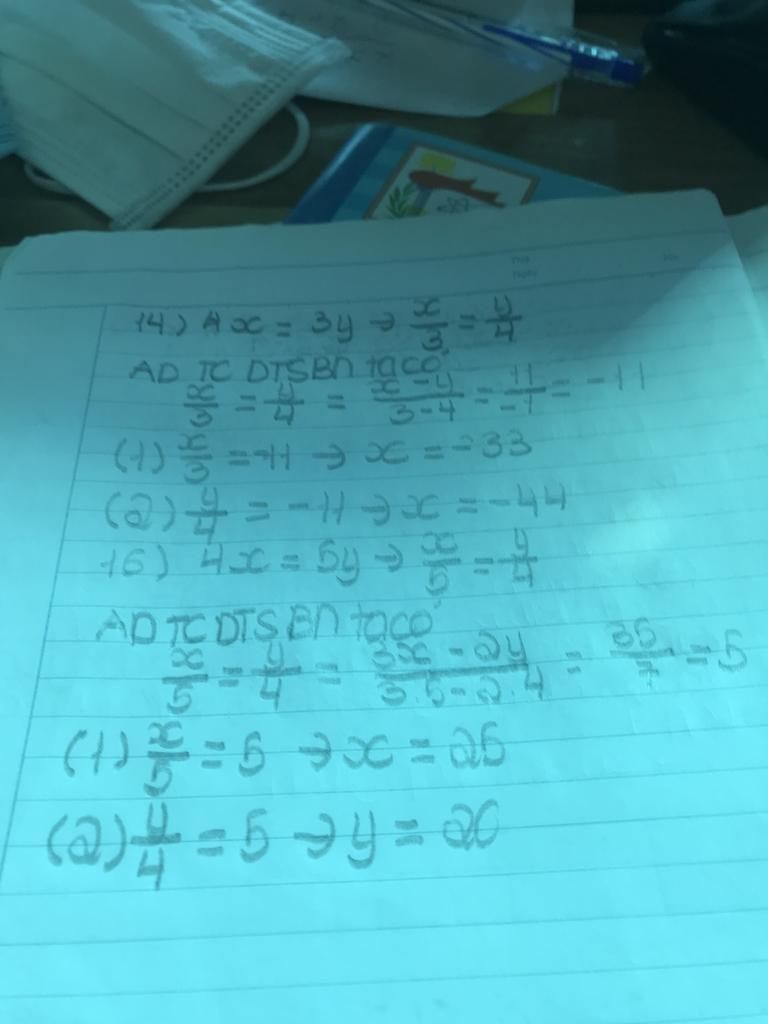 14) 4x = 3y → x/3 = y/4
AD TC DTSBN ta có
x/3 = y/4 = x-y/3-4 = 11/-1 = -11
(1) x/3 = -11 → x = -33
(2) y/4 = -11 → x = -44
16) 4x = 5y → x/5 = y/4
AD TC DTSBN ta có
x/5 = y/4 = 3x - 2y/3.5 - 2.4 = 35/7 = 5
(1) x/5 = 5 → x = 25
(2) y/4 = 5 → y = 20